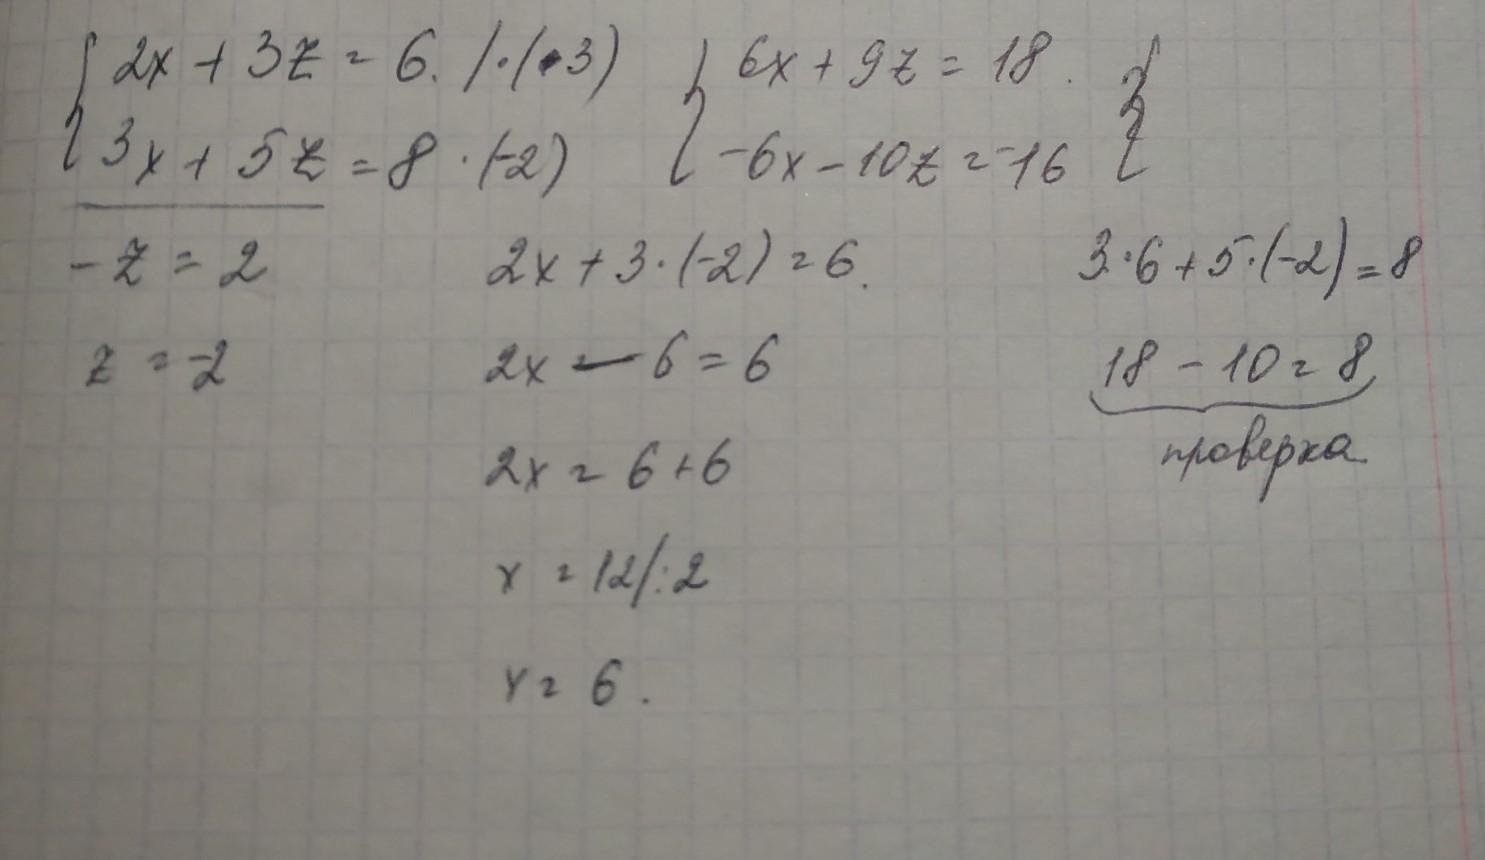 2x + 3z = 6. /·(·3)
3x + 5z = 8 ·(-2)
6x + 9z = 18.
-6x - 10z = -16
-z = 2
z = -2
2x + 3·(-2) = 6.
2x - 6 = 6
2x = 6 + 6
x = 12/:2
x = 6.
3·6 + 5·(-2) = 8
18 - 10 = 8
проверка